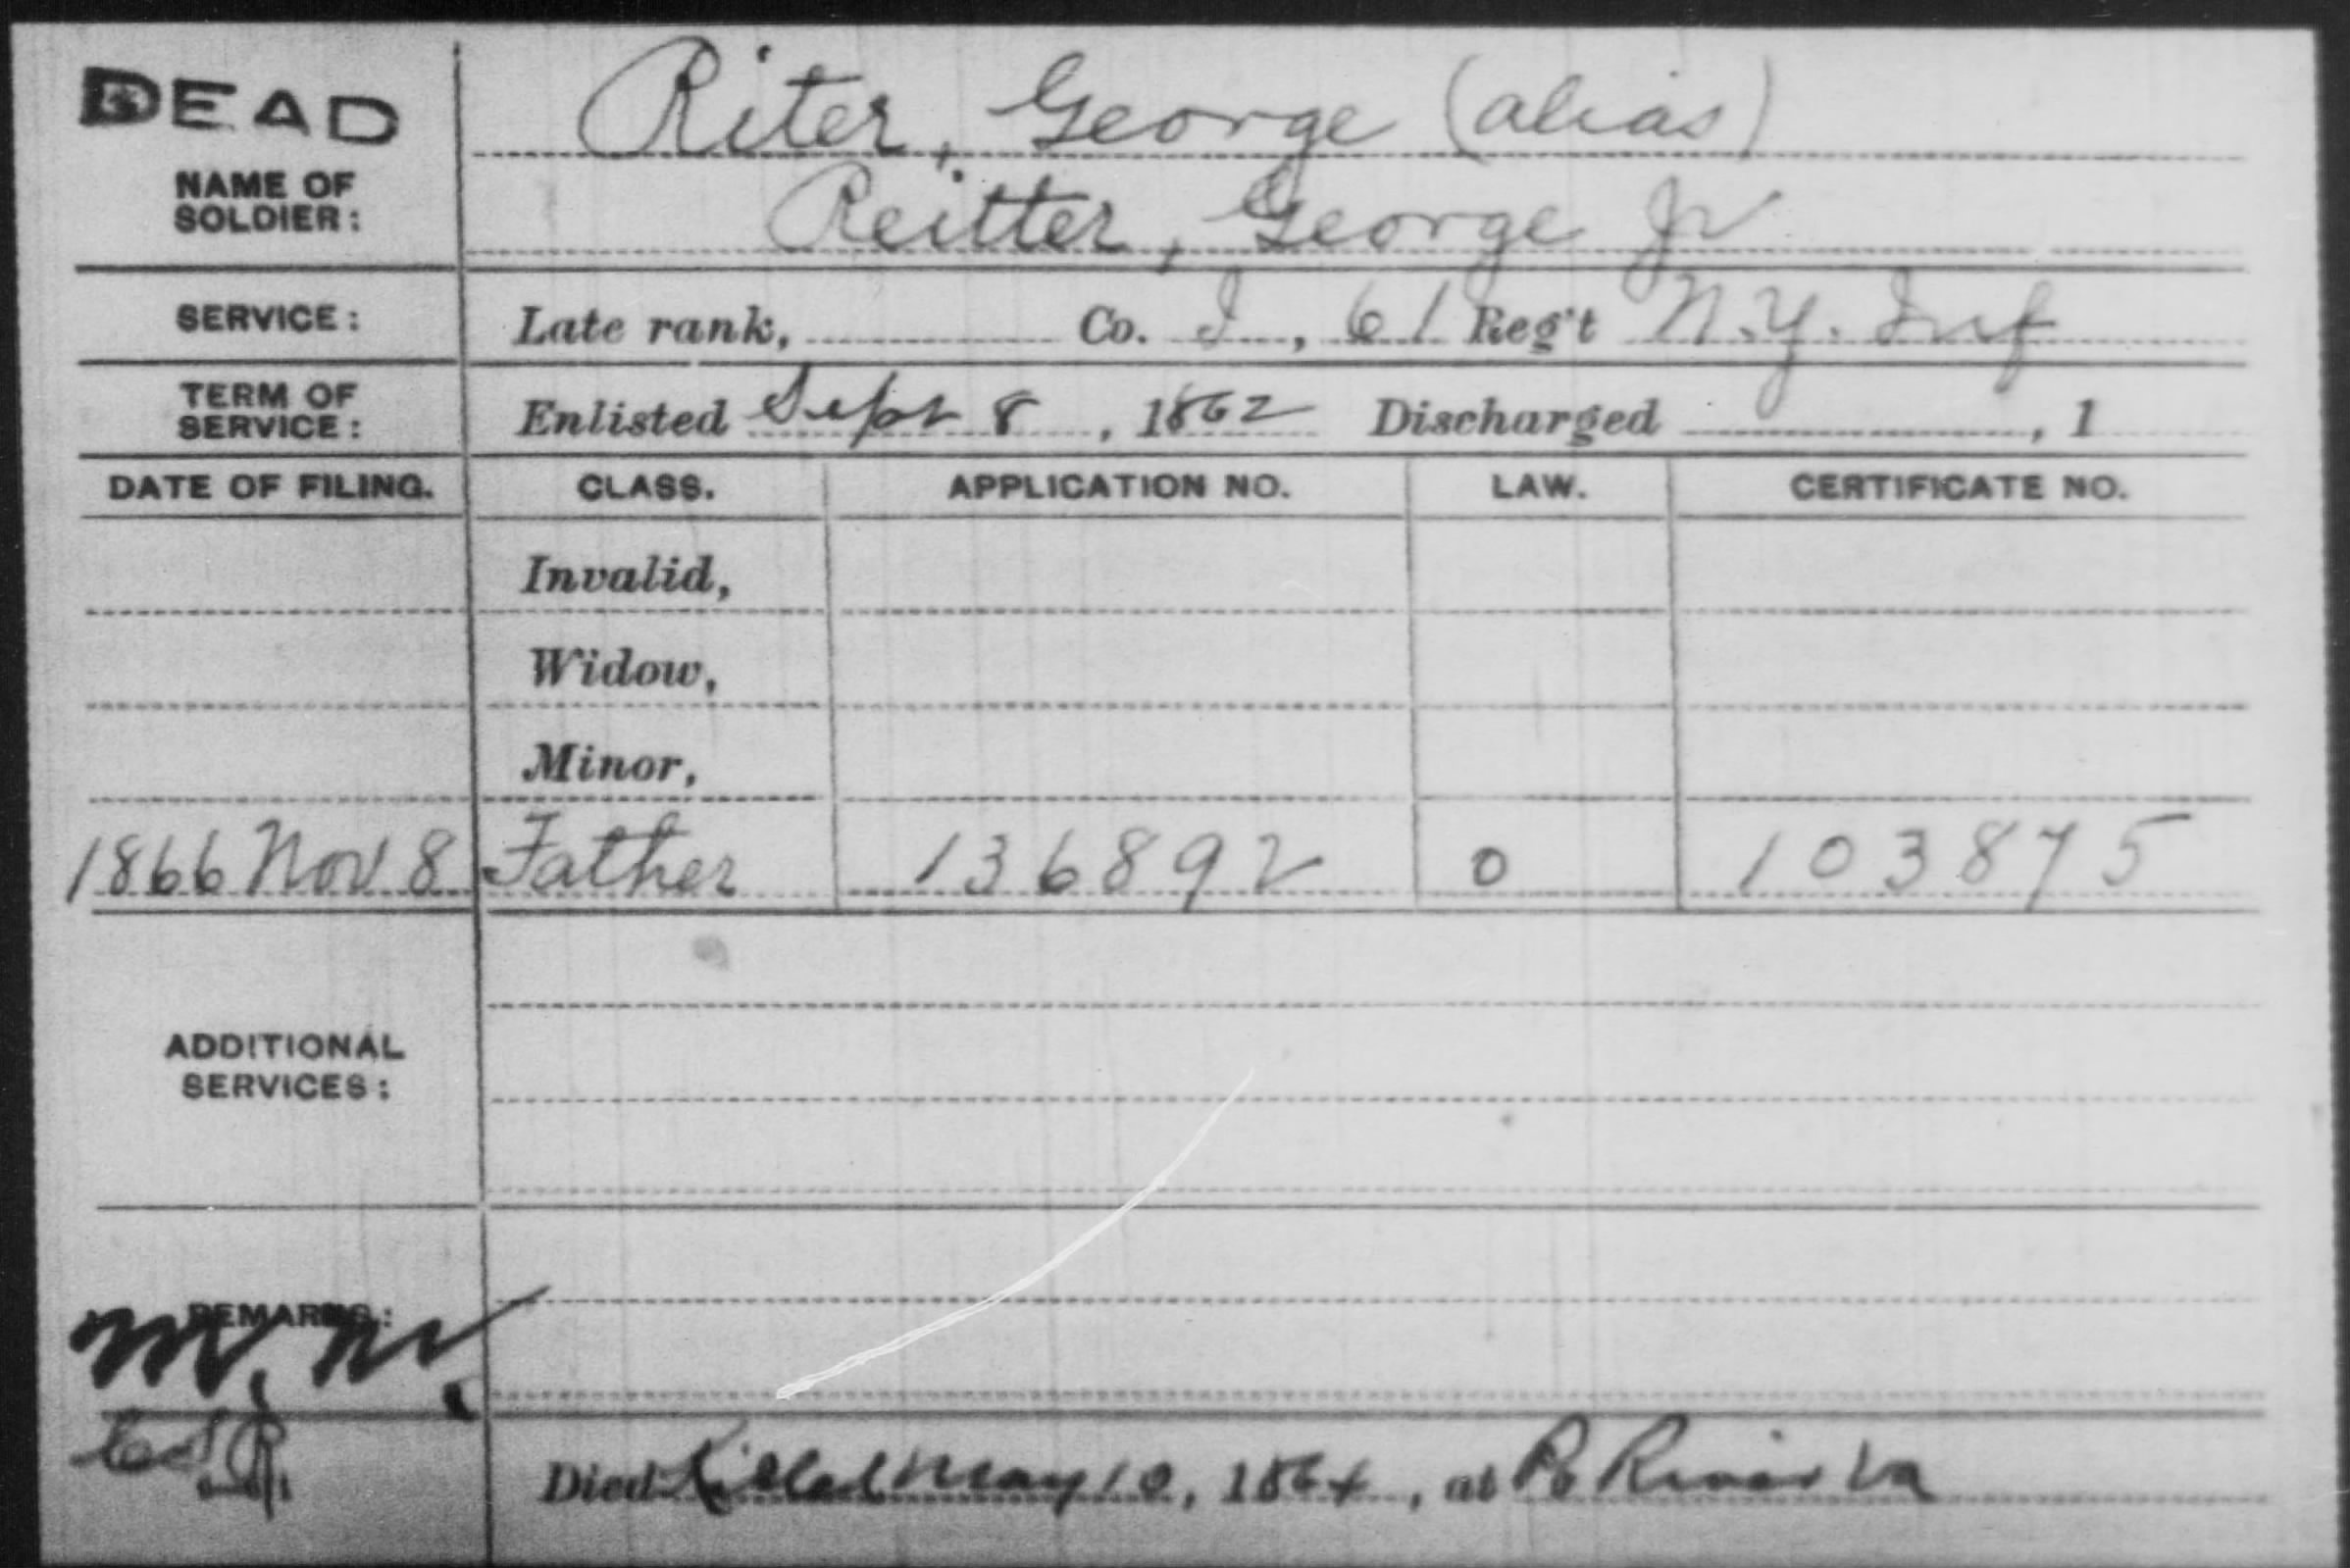 DEAD
Riter, George (alias)
NAME OF SOLDIER:
Reitter, George Jr
SERVICE: Late rank, Co. I, 61 Reg't N.Y. Inf
TERM OF SERVICE: Enlisted Sept 8, 1862 Discharged , 1
DATE OF FILING. CLASS. APPLICATION NO. LAW. CERTIFICATE NO.
Invalid,
Widow,
Minor,
1866 Nov 8 Father 136892 0 103875
ADDITIONAL SERVICES:
REMARKS:
Died Killed May 10, 1864, at Po River Va